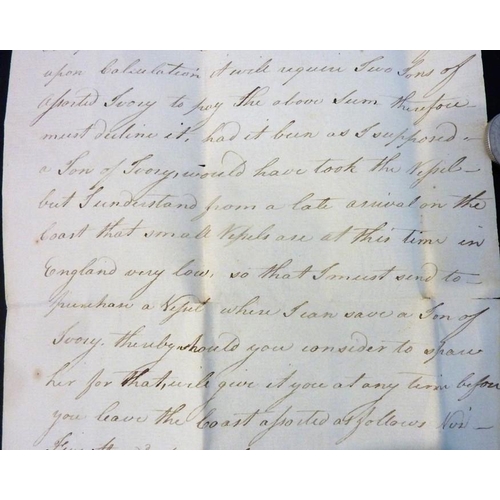 upon Calculation it will require Two Tons of
aforted Ivory to pay the above Sum therefore
must decline it, had it been as I supposed –
a Ton of Ivory, would have took the Vefsel –
but I understand from a late arrival on the
Coast that small Vefsels are at this time in
England very low, so that I must send to –
purchase a Vefsel where I can save a Ton of
Ivory, thereby should you consider to spare
her for that, will give it you at any time before
you leave the Coast aforted as follows Viz –